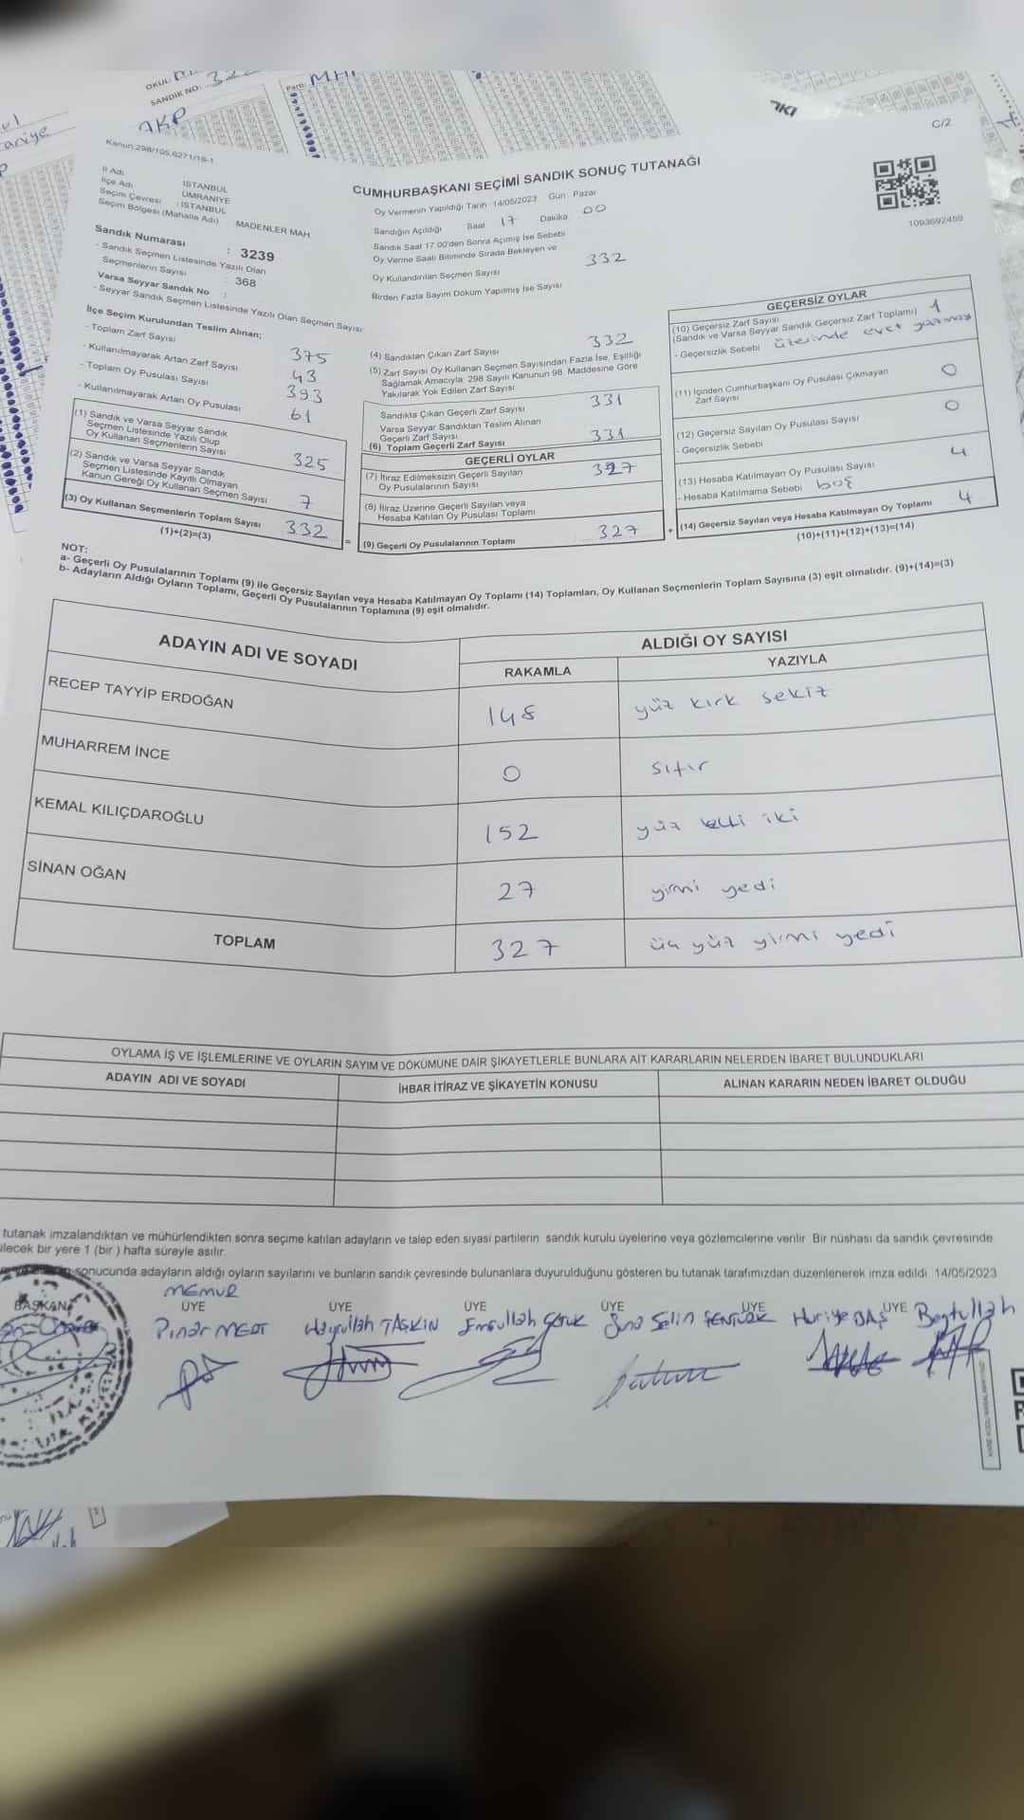 OKUL:
SANDIK NO:
Parti: MHP
AKP
Kanun:298/105,6271/16-1
C/2
CUMHURBAŞKANI SEÇİMİ SANDIK SONUÇ TUTANAĞI
İl Adı : İSTANBUL
İlçe Adı : ÜMRANİYE
Seçim Çevresi : İSTANBUL
Seçim Bölgesi (Mahalle Adı) : MADENLER MAH
Oy Vermenin Yapıldığı Tarih 14/05/2023 Gün : Pazar
Sandığın Açıldığı Saat 17 Dakika 00
1093692459
Sandık Numarası : 3239
- Sandık Seçmen Listesinde Yazılı Olan
Seçmenlerin Sayısı : 368
Varsa Seyyar Sandık No :
- Seyyar Sandık Seçmen Listesinde Yazılı Olan Seçmen Sayısı
Sandık Saat 17.00'den Sonra Açılmış İse Sebebi
Oy Verme Saati Bitiminde Sırada Bekleyen ve
Oy Kullandırılan Seçmen Sayısı 332
Birden Fazla Sayım Döküm Yapılmış İse Sayısı
İlçe Seçim Kurulundan Teslim Alınan;
- Toplam Zarf Sayısı 375
- Kullanılmayarak Artan Zarf Sayısı 43
- Toplam Oy Pusulası Sayısı 393
- Kullanılmayarak Artan Oy Pusulası 61
(1) Sandık ve Varsa Seyyar Sandık
Seçmen Listesinde Yazılı Olup
Oy Kullanan Seçmenlerin Sayısı 325
(2) Sandık ve Varsa Seyyar Sandık
Seçmen Listesinde Kayıtlı Olmayan
Kanun Gereği Oy Kullanan Seçmen Sayısı 7
(3) Oy Kullanan Seçmenlerin Toplam Sayısı 332
(1)+(2)=(3)
(4) Sandıktan Çıkan Zarf Sayısı 332
(5) Zarf Sayısı Oy Kullanan Seçmen Sayısından Fazla İse, Eşitliği
Sağlamak Amacıyla, 298 Sayılı Kanunun 98. Maddesine Göre
Yakılarak Yok Edilen Zarf Sayısı
Sandıkta Çıkan Geçerli Zarf Sayısı 331
Varsa Seyyar Sandıktan Teslim Alınan
Geçerli Zarf Sayısı
(6) Toplam Geçerli Zarf Sayısı 331
GEÇERLİ OYLAR
(7) İtiraz Edilmeksizin Geçerli Sayılan
Oy Pusulalarının Sayısı 327
(8) İtiraz Üzerine Geçerli Sayılan veya
Hesaba Katılan Oy Pusulası Toplamı
= (9) Geçerli Oy Pusulalarının Toplamı 327
GEÇERSİZ OYLAR
(10) Geçersiz Zarf Sayısı 1
(Sandık ve Varsa Seyyar Sandık Geçersiz Zarf Toplamı)
- Geçersizlik Sebebi üzerinde evet yazması
(11) İçinden Cumhurbaşkanı Oy Pusulası Çıkmayan
Zarf Sayısı 0
(12) Geçersiz Sayılan Oy Pusulası Sayısı 0
- Geçersizlik Sebebi
(13) Hesaba Katılmayan Oy Pusulası Sayısı 4
- Hesaba Katılmama Sebebi boş
+ (14) Geçersiz Sayılan veya Hesaba Katılmayan Oy Toplamı 4
(10)+(11)+(12)+(13)=(14)
NOT:
a- Geçerli Oy Pusulalarının Toplamı (9) ile Geçersiz Sayılan veya Hesaba Katılmayan Oy Toplamı (14) Toplamları, Oy Kullanan Seçmenlerin Toplam Sayısına (3) eşit olmalıdır. (9)+(14)=(3)
b- Adayların Aldığı Oyların Toplamı, Geçerli Oy Pusulalarının Toplamına (9) eşit olmalıdır.
ADAYIN ADI VE SOYADI ALDIĞI OY SAYISI
RAKAMLA YAZIYLA
RECEP TAYYİP ERDOĞAN 148 yüz kırk sekiz
MUHARREM İNCE 0 sıfır
KEMAL KILIÇDAROĞLU 152 yüz elli iki
SİNAN OĞAN 27 yirmi yedi
TOPLAM 327 üç yüz yirmi yedi
OYLAMA İŞ VE İŞLEMLERİNE VE OYLARIN SAYIM VE DÖKÜMÜNE DAİR ŞİKAYETLERLE BUNLARA AİT KARARLARIN NELERDEN İBARET BULUNDUKLARI
ADAYIN ADI VE SOYADI İHBAR İTİRAZ VE ŞİKAYETİN KONUSU ALINAN KARARIN NEDEN İBARET OLDUĞU
tutanak imzalandıktan ve mühürlendikten sonra seçime katılan adayların ve talep eden siyasi partilerin sandık kurulu üyelerine veya gözlemcilerine verilir. Bir nüshası da sandık çevresinde
ilecek bir yere 1 (bir) hafta süreyle asılır.
sonucunda adayların aldığı oyların sayılarını ve bunların sandık çevresinde bulunanlara duyurulduğunu gösteren bu tutanak tarafımızdan düzenlenerek imza edildi 14/05/2023
MEMUR
BAŞKAN ÜYE ÜYE ÜYE ÜYE ÜYE ÜYE
Pınar MEDT Hayrullah TAŞKIN Emrullah Suna Selin ŞENTÜRK Huriye BAŞ Beytullah